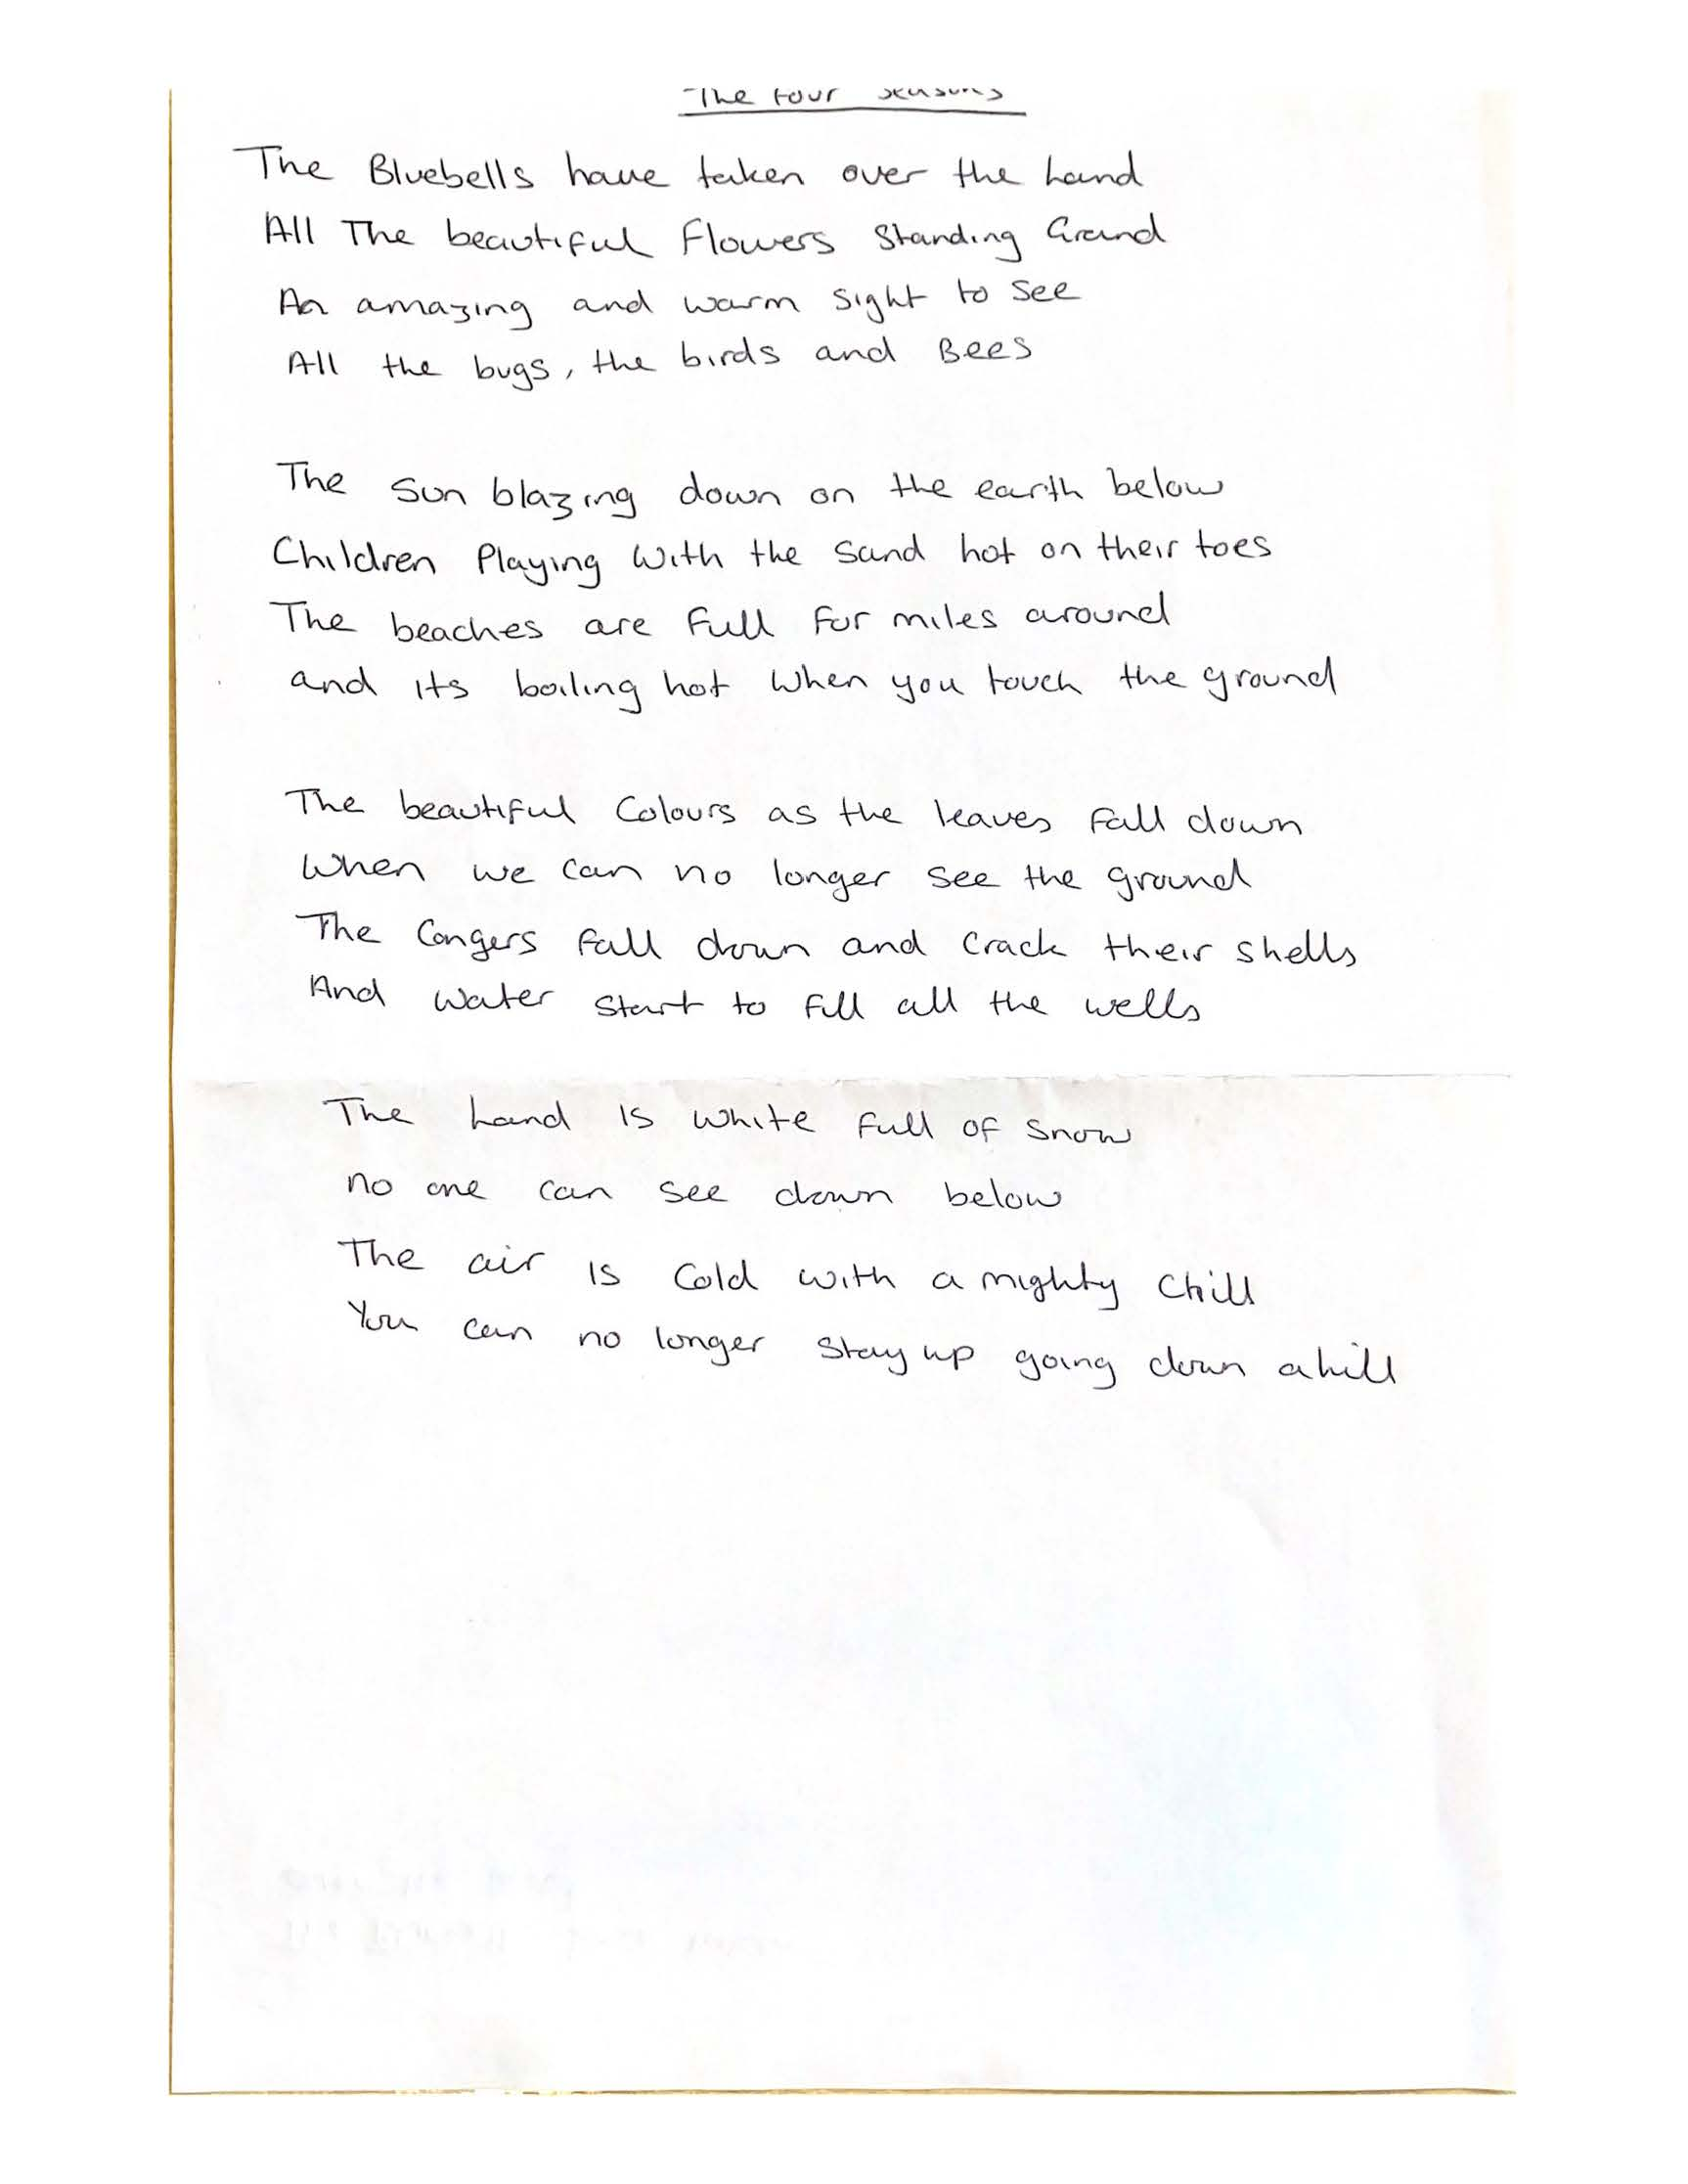 The four seasons
The Bluebells have taken over the Land
All The beautiful Flowers Standing Grand
An amazing and warm Sight to See
All the bugs, the birds and Bees
The Sun blazing down on the earth below
Children Playing With the Sand hot on their toes
The beaches are Full For miles around
and its boiling hot When you touch the ground
The beautiful Colours as the leaves Fall down
When we can no longer see the ground
The Congers Fall down and Crack their shells
And Water Start to Fill all the wells
The Land is White Full of Snow
no one can see down below
The air is Cold with a mighty Chill
You can no longer Stay up going down a hill